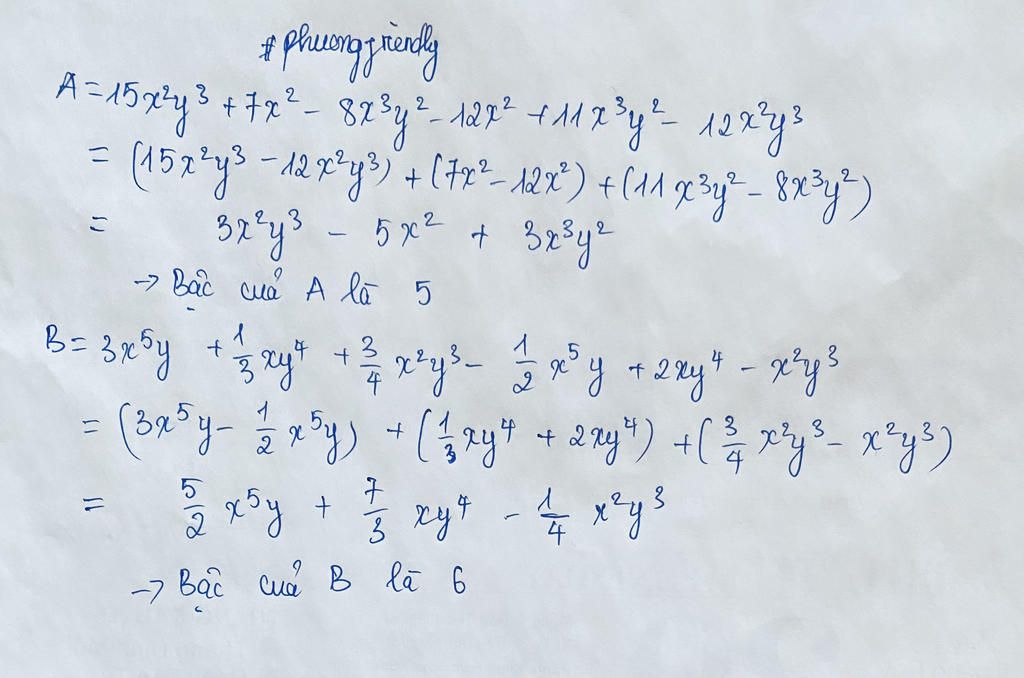 #phuongfriendly
A = 15x²y³ + 7x² - 8x³y² - 12x² + 11x³y² - 12x²y³
= (15x²y³ - 12x²y³) + (7x² - 12x²) + (11x³y² - 8x³y²)
= 3x²y³ - 5x² + 3x³y²
→ Bậc của A là 5
B = 3x⁵y + 1/3 xy⁴ + 3/4 x²y³ - 1/2 x⁵y + 2xy⁴ - x²y³
= (3x⁵y - 1/2 x⁵y) + (1/3 xy⁴ + 2xy⁴) + (3/4 x²y³ - x²y³)
= 5/2 x⁵y + 7/3 xy⁴ - 1/4 x²y³
→ Bậc của B là 6